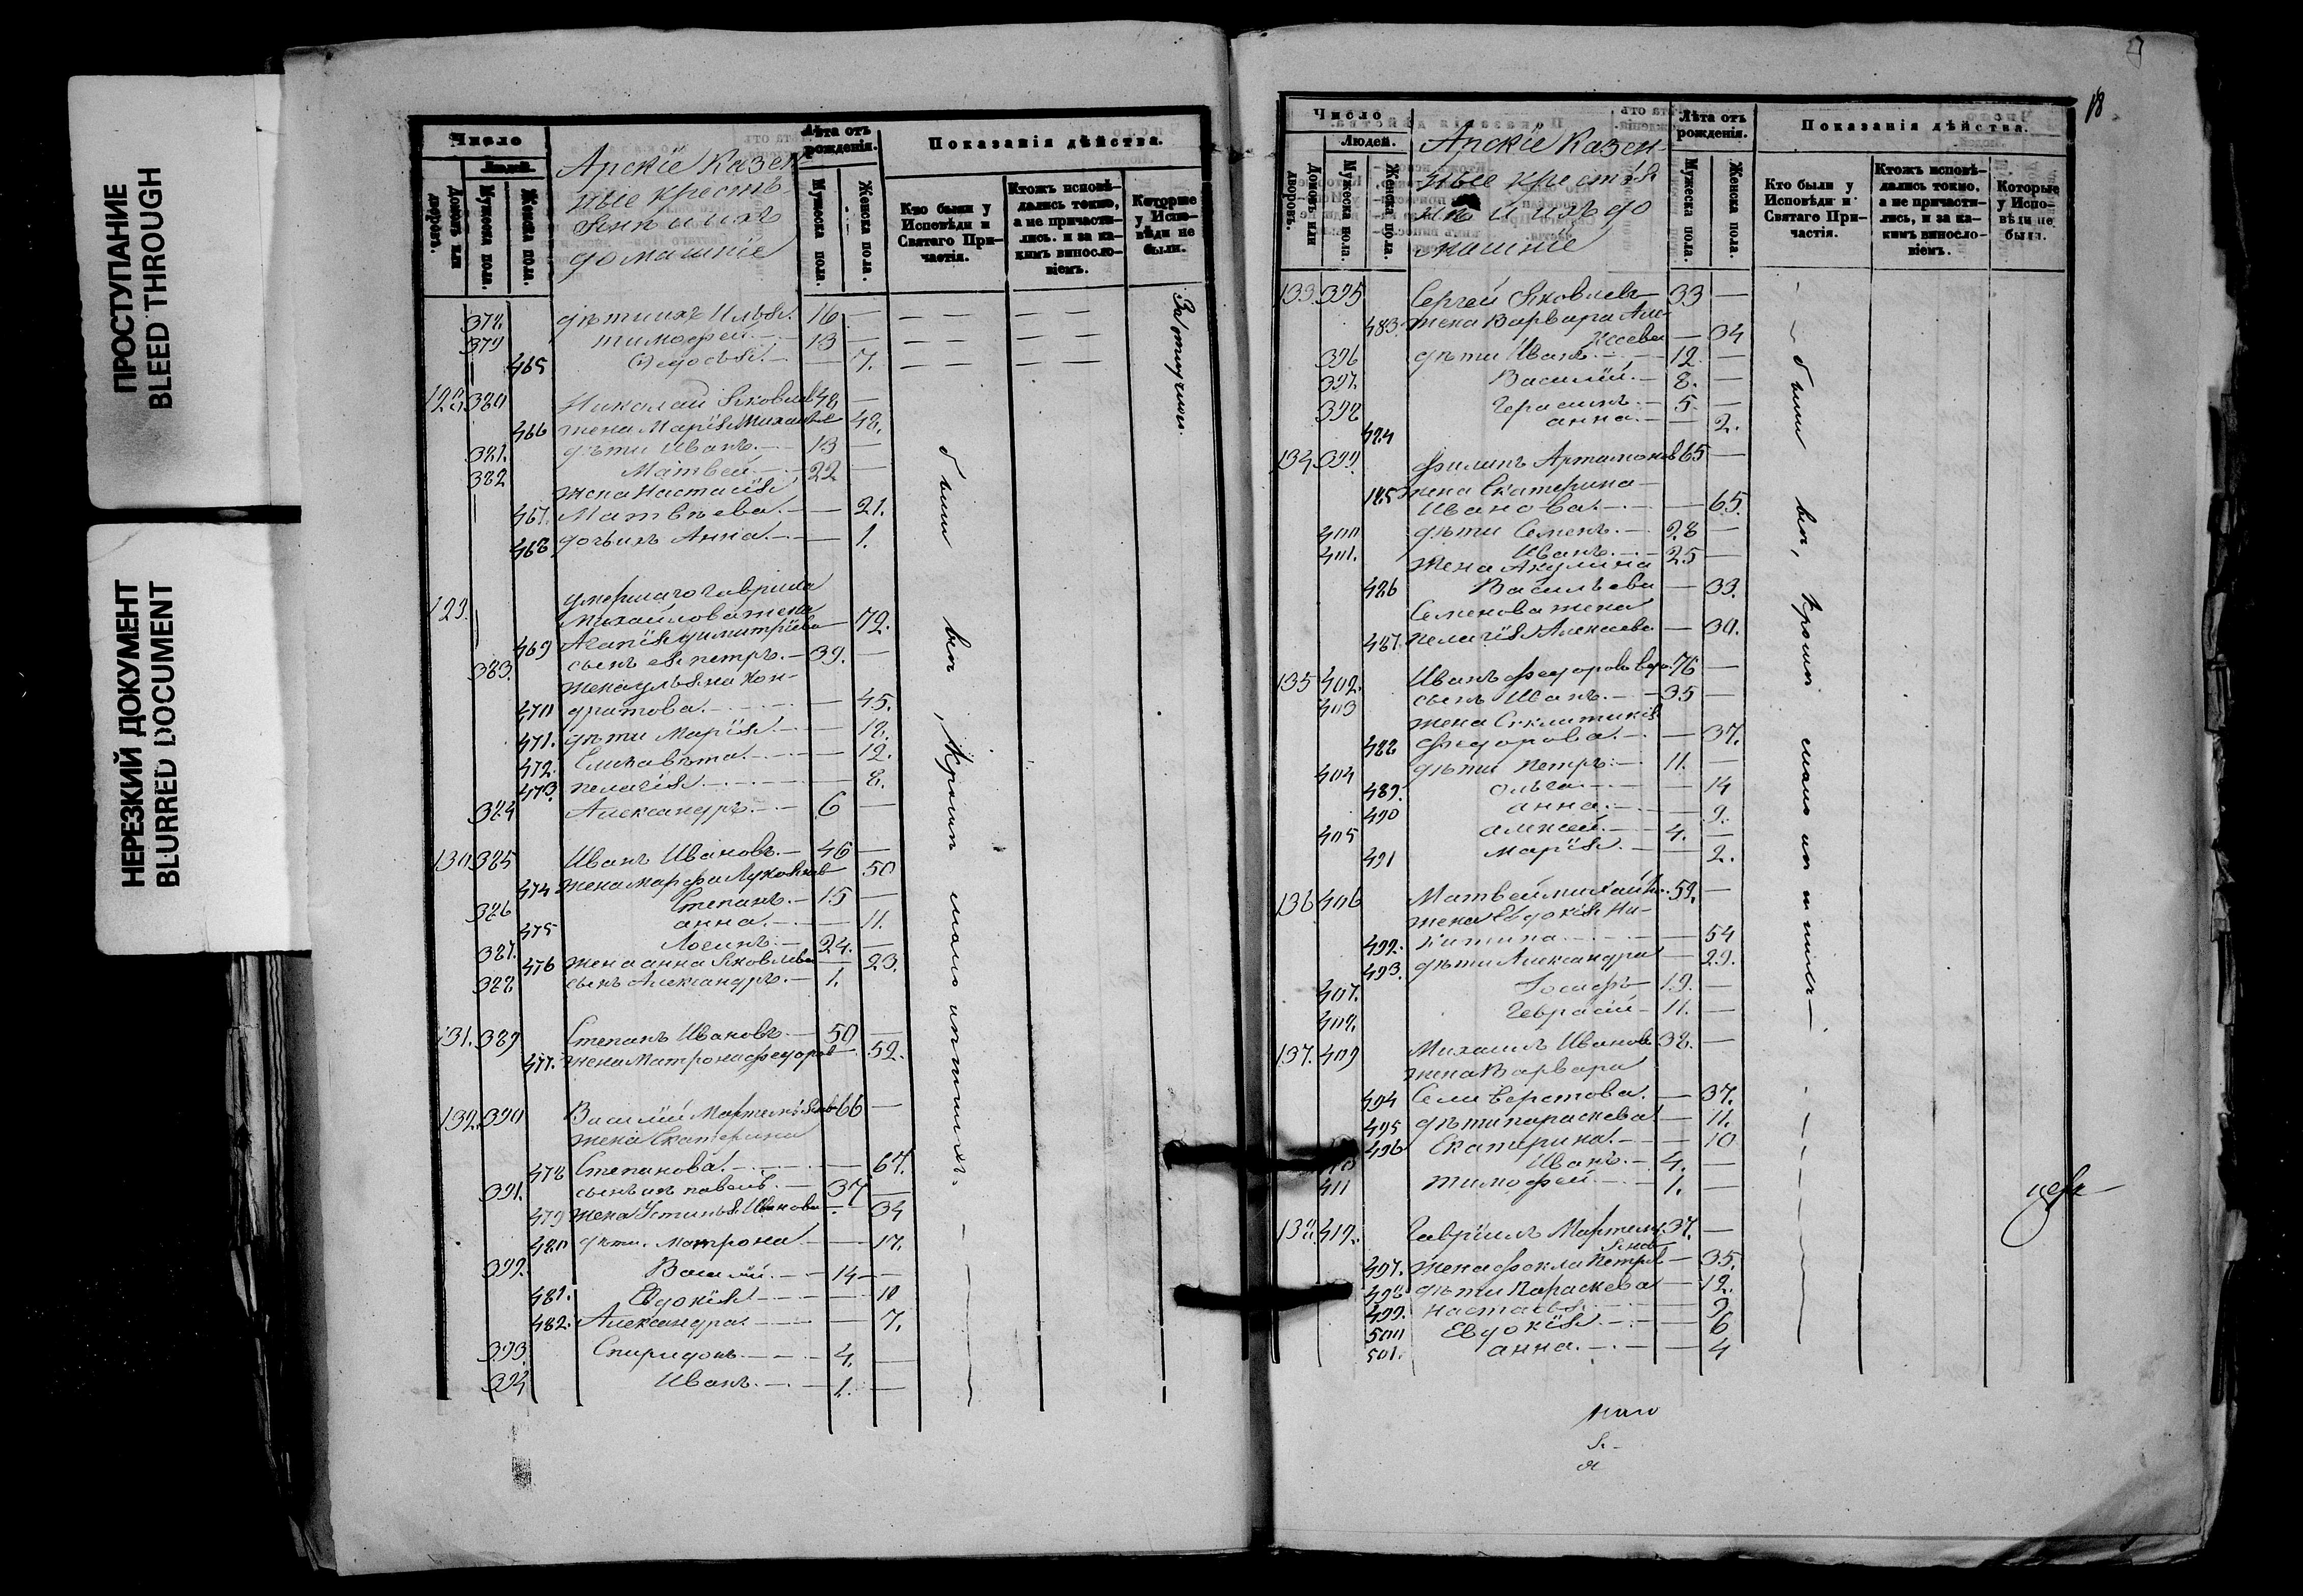 ПРОСТУПАНИЕ
BLEED THROUGH
НЕРЕЗКИЙ ДОКУМЕНТ
BLURRED DOCUMENT
Число
Людей.
Домовъ или дворовъ.
Мужеска пола.
Женска пола.
Арскіе Казен
ные крестъ-
янъ и ихъ
домашніе
Лѣта отъ рожденія.
Мужеска пола.
Женска пола.
Показанія дѣйства.
Кто были у Исповѣди и Святаго Причастія.
Ктожъ исповѣдались токмо, а не причастились, и за какимъ винословіемъ.
Которые у Исповѣди не были.
378 дѣти ихъ Илья. 16 —
379 тимофей 13 —
465 Ѳедосья — 7.
За отлучкою.
128 380 Николай Яковлев 48 —
466 жена Марія Михаилов 48.
381. дѣти Иванъ. 13 —
382 Матвей. 22 —
жена Настасія
467. Матвѣева. — 21.
468 дочь ихъ Анна. — 1.
129. умершаго Гаврила
Михайлова жена
469 Агапія димитріева — 72.
383. сынъ ея петръ. 39. —
жена ульяна Кон-
470 дратова. — 45.
471. дѣти Марія — 18.
472. Елисавѣта. — 12.
473. пелагія — 8.
384 Александръ. 6 —
130 385 Иванъ Ивановъ. 46 —
474 жена марфа Лукоянов 50
386 Степанъ. 15 —
475 анна. — 11.
387. Логинъ. 24. —
476 жена анна Яковлева — 23.
388. сынъ Александръ. 1.
131. 389 Степанъ Ивановъ. 50 —
477. жена Матрона федоров — 52.
132. 390 Василій Мартемьянов 66 —
жена Екатерина
478 Степанова. — 67.
391. сынъ ихъ павелъ. 37 —
479 жена Устинья Иванова — 34
480 дѣти. матрона — 17.
392. Василій. 14 —
481. Евдокія — 10
482. Александра. — 7.
393. Спиридонъ. 4. —
394 Иванъ. 1. —
были
18
Число
Людей.
Домовъ или дворовъ.
Мужеска пола.
Женска пола.
Арскіе Казен
ные крестья
нъ и ихъ до
машніе
Лѣта отъ рожденія.
Мужеска пола.
Женска пола.
Показанія дѣйства.
Кто были у Исповѣди и Святаго Причастія.
Ктожъ исповѣдались токмо, а не причастились, и за какимъ винословіемъ.
Которые у Исповѣди не были.
133. 395 Сергей Яковлевъ 33 —
483. жена Варвара Але-
ксеева — 34
396 дѣти Иванъ 12. —
397. Василій. 8. —
398 Герасимъ. 5. —
484 анна. — 2.
134 399 филипъ Артамонов 65 —
485 жена Екатерина
Иванова. — 65.
400 дѣти Семенъ. 28 —
401. Иванъ. 25 —
жена Акулина
486 Васильева — 33.
Семенова жена
487. пелагія Алексеева — 30.
135 402. Иванъ федоровъ вдо. 76 —
403 сынъ Иванъ. 35 —
жена
488 федорова. — 37.
404 дѣти петръ. 11. —
489. ольга. — 14
490 анна. — 9.
405 алексей. 4. —
491 марія. — 2.
136 406 Матвей михайло. 59. —
жена Евдокія Ни-
492. китина — 54
493. дѣти Александра — 29.
407. Іосифъ 19. —
408. Гаврасій 11. —
137. 409 Михаилъ Иванов 38. —
жена Варвара
494 Селиверстова. — 37.
495 дѣти параскева. — 11.
496 Екатерина. — 10
Иванъ. 4. —
411 тимофей 1. —
138. 412. Гавріилъ Мартемь. 37. —
янов
497. жена фекла Петров — 35.
498 дѣти Параскева — 12.
499. настасья — 9
500 Евдокія — 6
501. анна. — 4
были